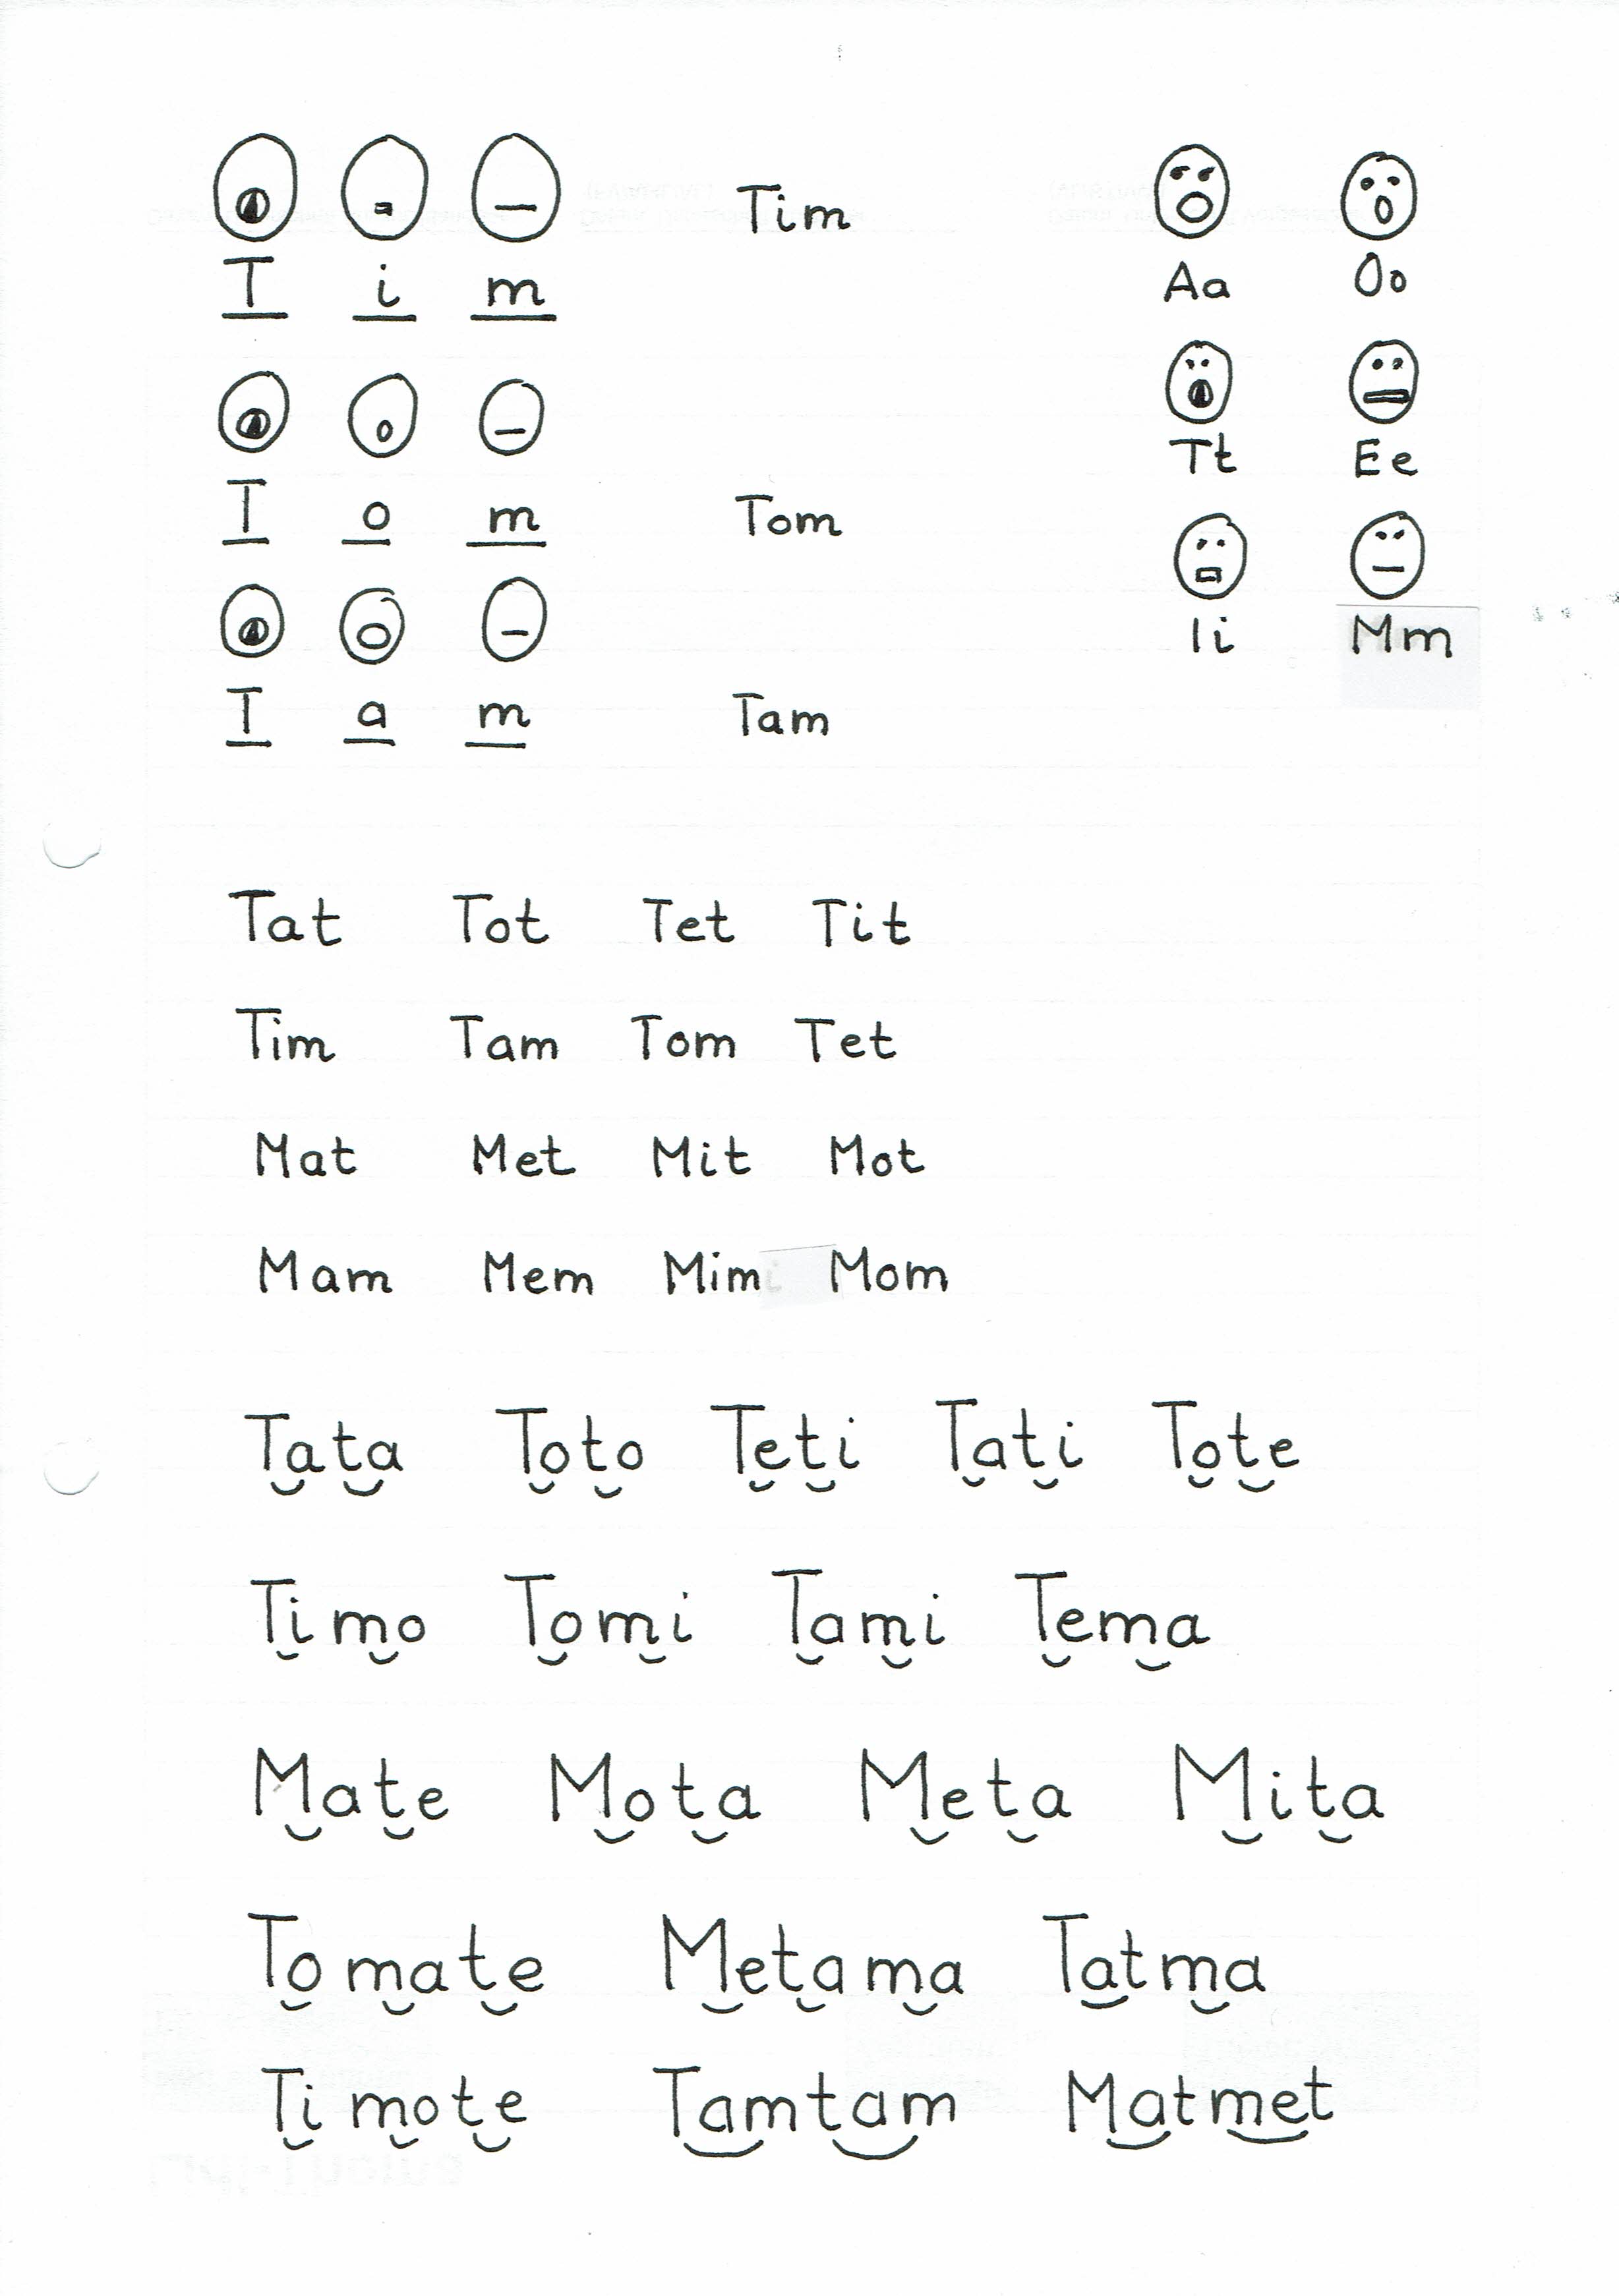 T i m Tim
Aa Oo
T o m Tom
Tt Ee
T a m Tam
Ii Mm
Tat Tot Tet Tit
Tim Tam Tom Tet
Mat Met Mit Mot
Mam Mem Mim Mom
Tata Toto Teti Tati Tote
Timo Tomi Tami Tema
Mate Mota Meta Mita
Tomate Metama Tatma
Timote Tamtam Matmet